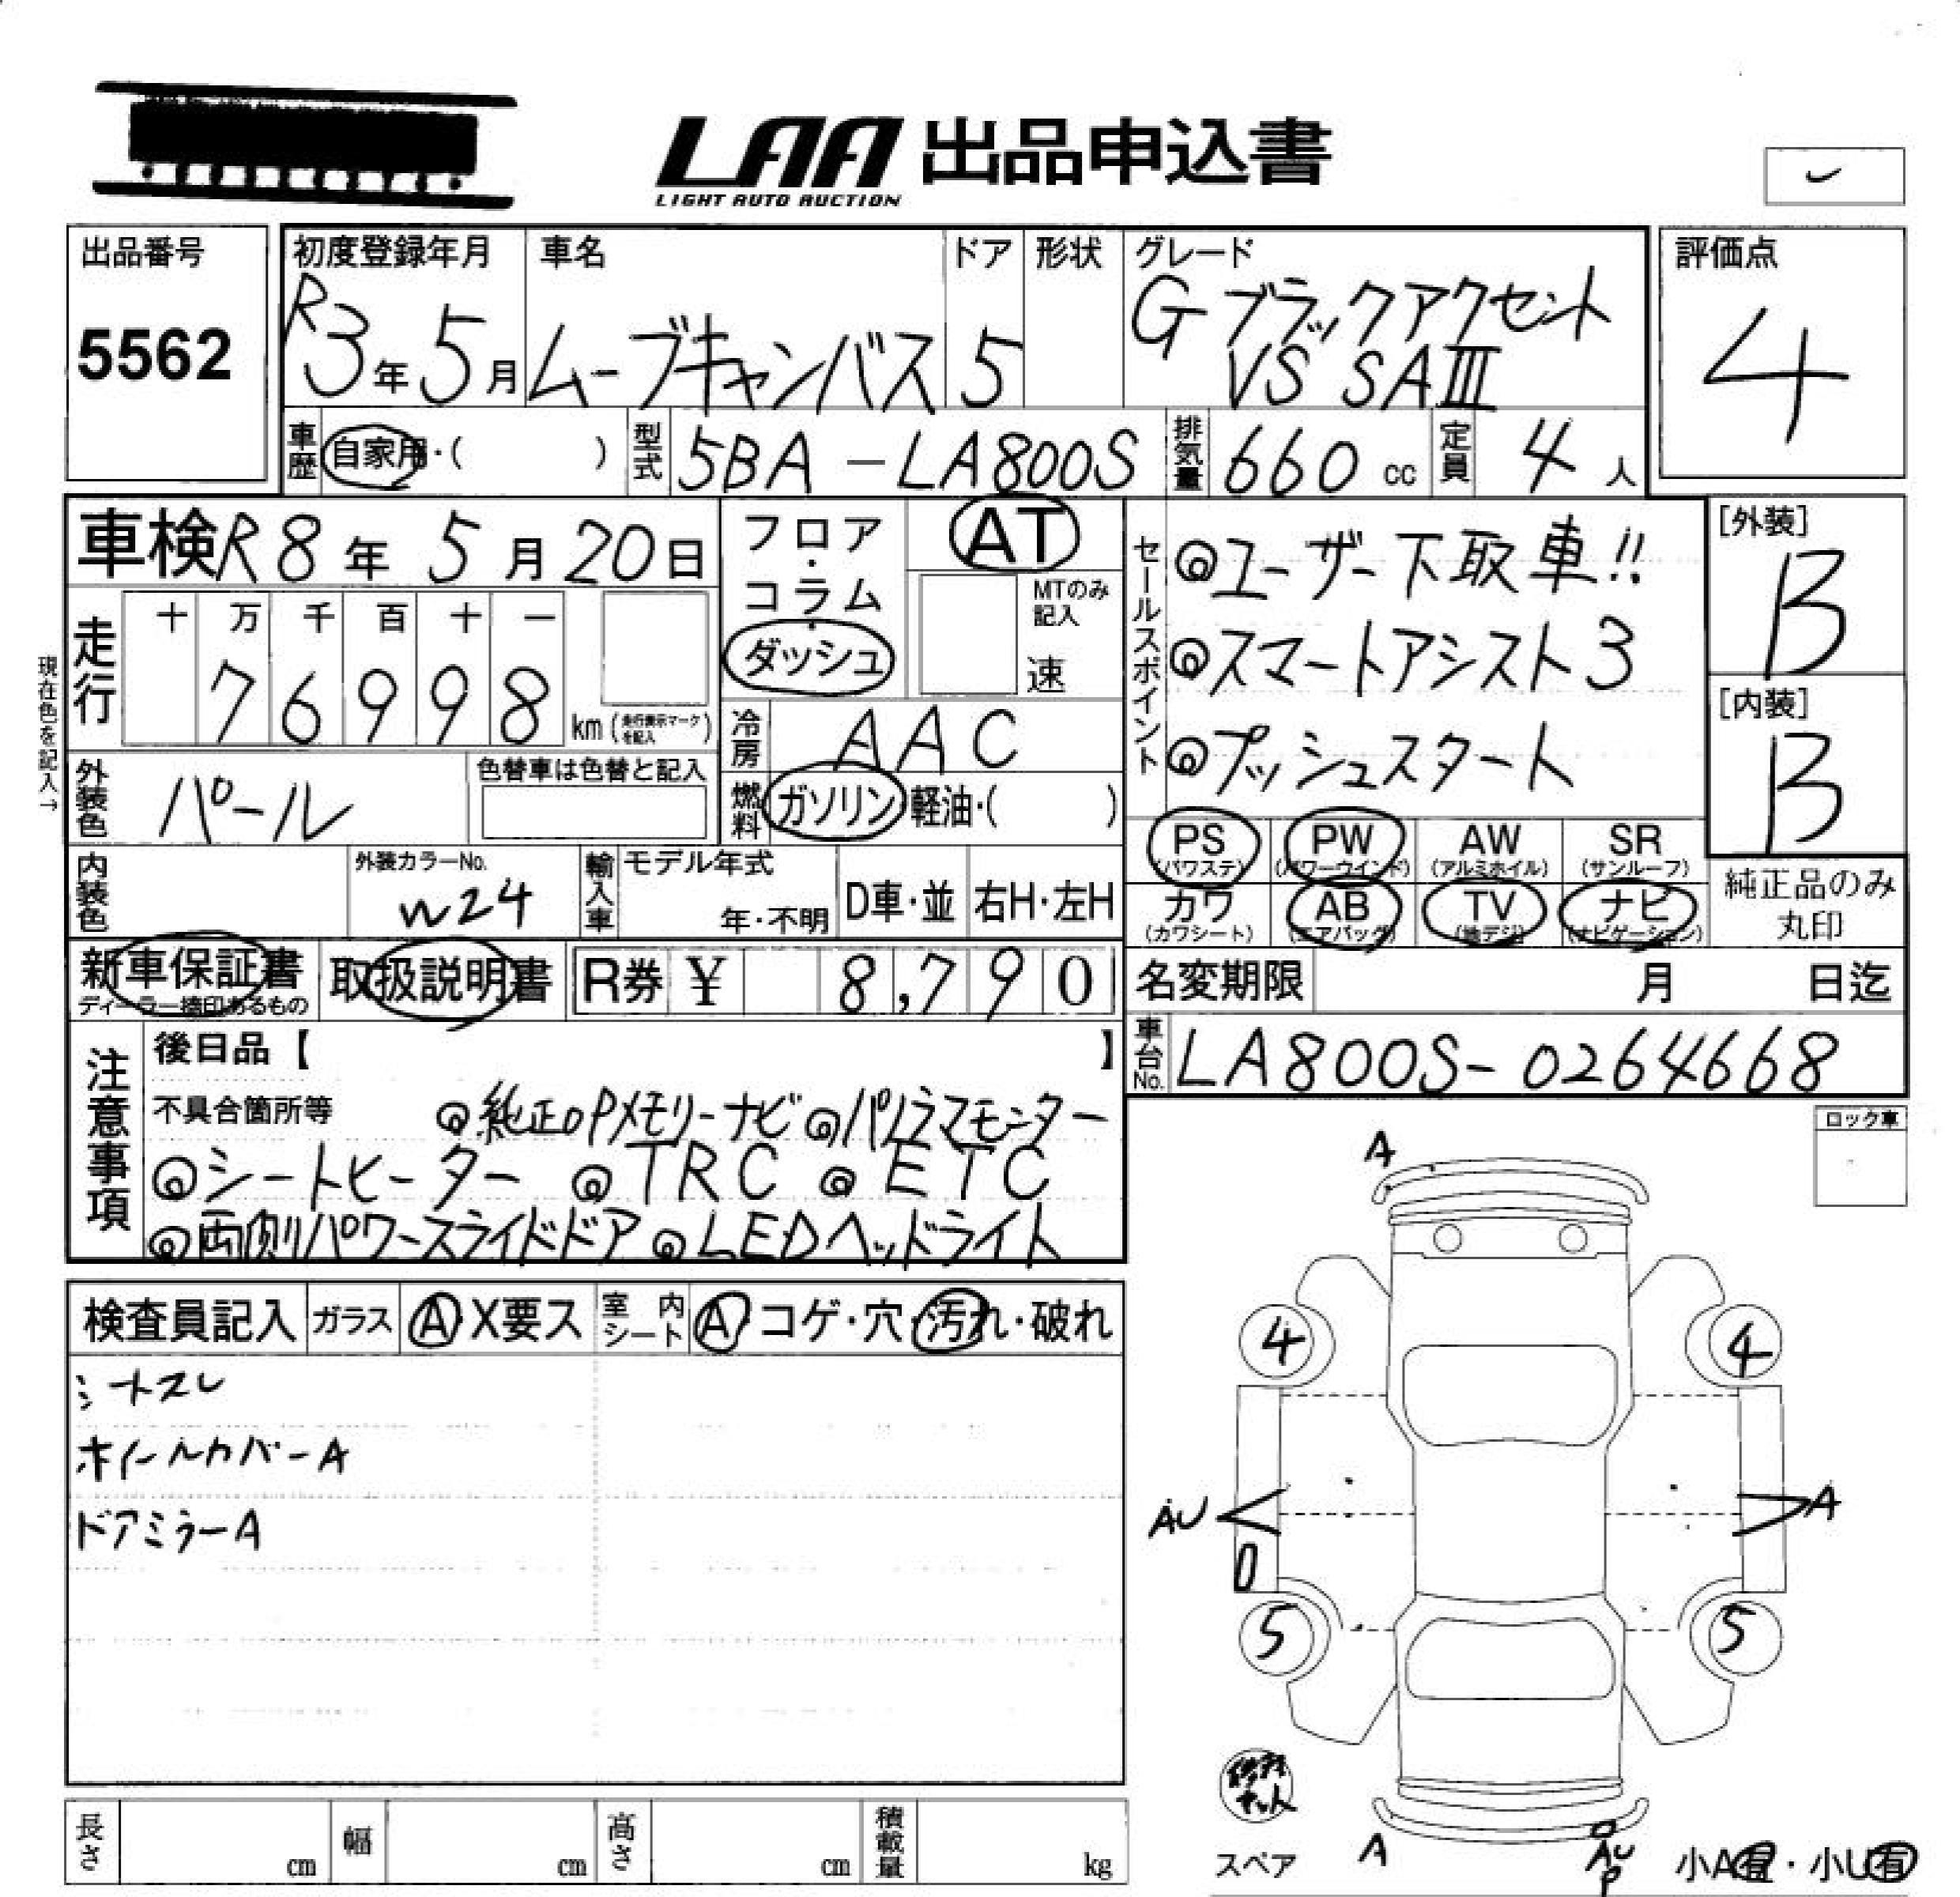 LAA 出品申込書
LIGHT AUTO AUCTION
出品番号
5562
初度登録年月
R3年5月
車名
ムーブキャンバス
ドア
5
形状
グレード
Gブラックアクセント
VS SAⅢ
評価点
4
車歴 自家用・( )
型式 5BA-LA800S
排気量 660cc
定員 4人
車検 R8年5月20日
フロア・コラム・ダッシュ
AT
MTのみ記入
速
セールスポイント
◎ユーザー下取車!!
◎スマートアシスト3
◎プッシュスタート
[外装]
B
[内装]
B
現在色を記入→
走行
十 万 千 百 十 一
7 6 9 9 8
km (走行表示マークを記入)
冷房 AAC
外装色 パール
色替車は色替と記入
燃料 ガソリン・軽油・( )
PS (パワステ)
PW (パワーウインド)
AW (アルミホイル)
SR (サンルーフ)
カワ (カワシート)
AB (エアバッグ)
TV (地デジ)
ナビ (ナビゲーション)
純正品のみ
丸印
内装色
外装カラーNo.
W24
輸入車
モデル年式
年・不明
D車・並
右H・左H
新車保証書
ディーラー捺印あるもの
取扱説明書
R券 ¥ 8,790
名変期限 月 日迄
車台No. LA800S-0264668
注意事項
後日品【 】
不具合箇所等 ◎純正OPメモリーナビ ◎パノラマモニター
◎シートヒーター ◎TRC ◎ETC
◎両側パワースライドドア ◎LEDヘッドライト
ロック車
検査員記入
ガラス A X要ス
室内シート A コゲ・穴・汚れ・破れ
シートスレ
ホイールカバーA
ドアミラーA
A
4
4
AU
A
5
5
スペア
A
AU
P
小A有・小U有
長さ cm
幅 cm
高さ cm
積載量 kg